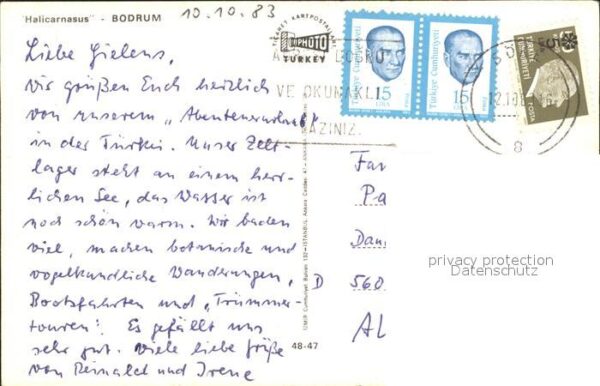 "Halicarnasus" - BODRUM
10.10.83
Liebe Gielens,
wir grüßen Euch herzlich
von unserem „Abenteuerurlaub"
in der Türkei. Unser Zelt-
lager steht an einem herr-
lichen See, das Wasser ist
noch schön warm. Wir baden
viel, machen botanische und
vogelkundliche Wanderungen,
Bootsfahrten und „Trümmer-
touren". Es gefällt uns
sehr gut. Viele liebe Grüße
von Reinald und Irene
TICARET KARTPOSTALLARI
TURKEY
DOĞRU
VE OKUNAKLI
YAZINIZ.
Türkiye Cumhuriyeti
15
LIRA
1982
Türkiye Cumhuriyeti
15
LIRA
1982
8
Fam
Pa
Dam
D 560
AL
privacy protection
Datenschutz
48-47